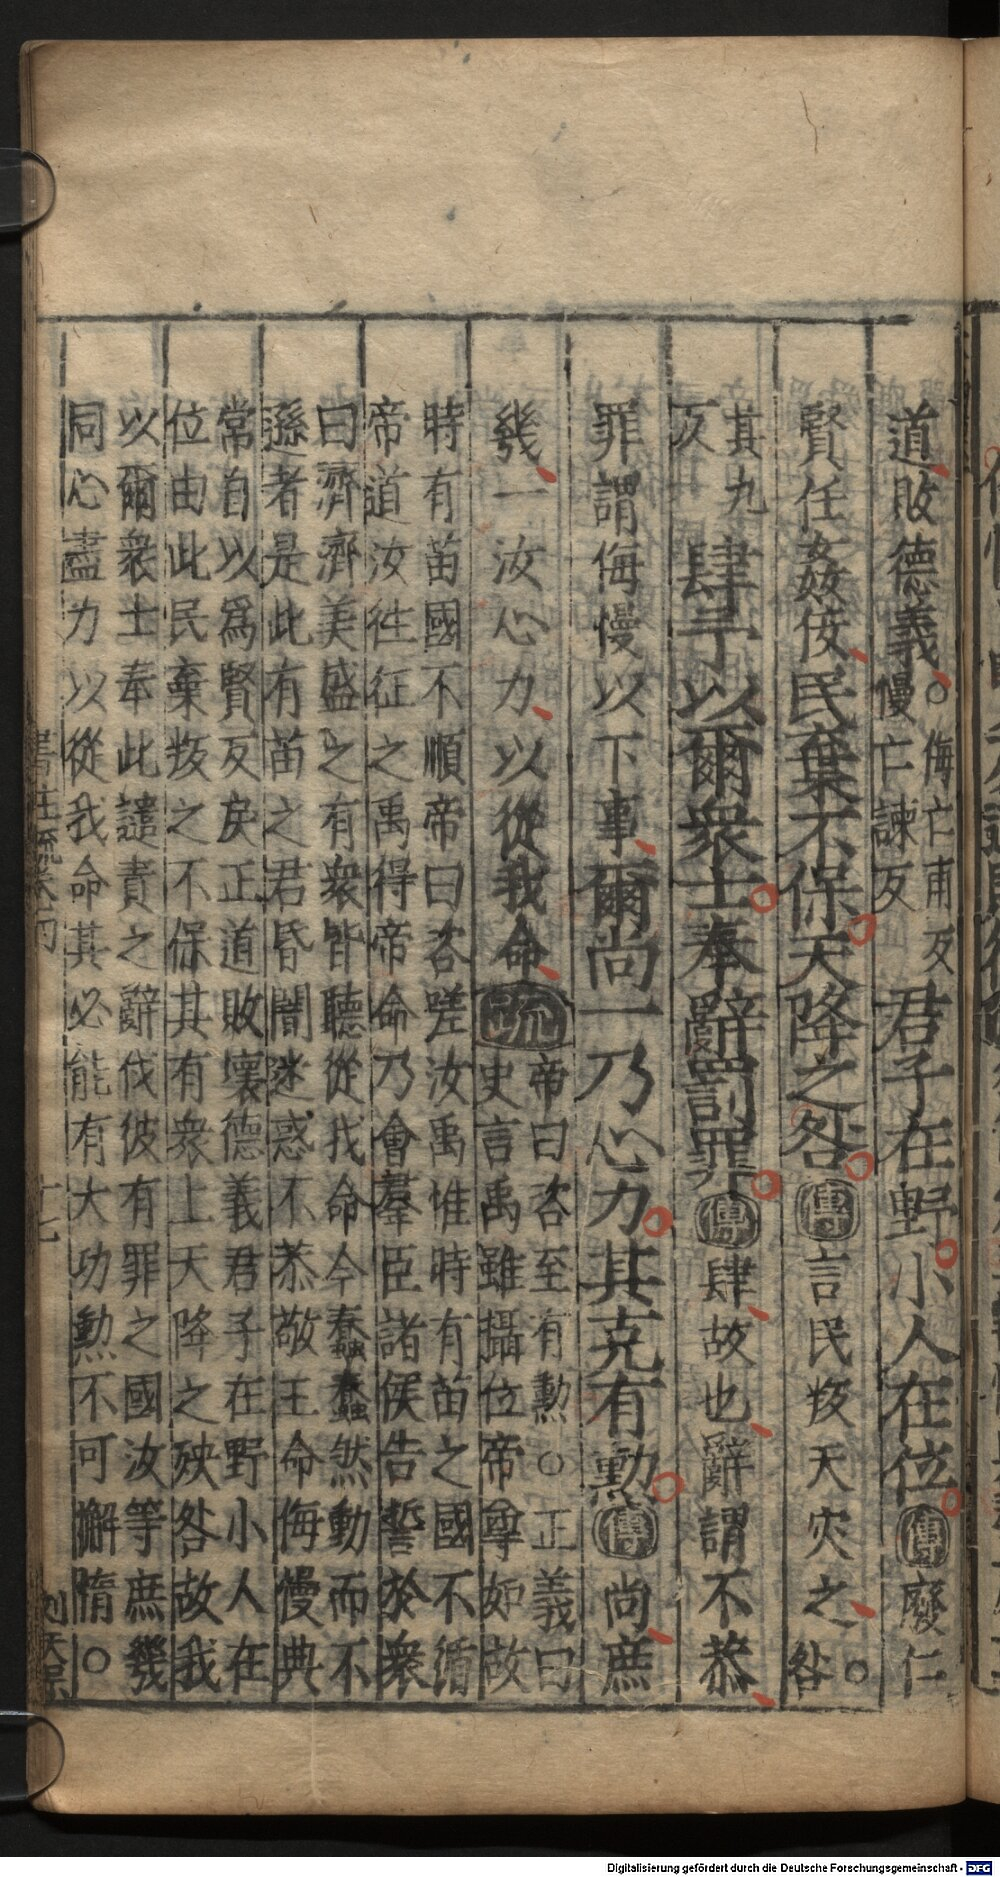 道敗德義○侮亡甫反
慢亡諫反
君子在野小人在位傳廢仁
賢任姦佞民棄不保天降之咎傳言民叛天災之○咎
其九
反
肆予以爾衆士奉辭罰罪傳肆故也辭謂不恭
罪謂侮慢以下事爾尚一乃心力其克有勳傳尚庶
幾一汝心力以從我命疏帝曰咨至有勳○正義曰
史言禹雖攝位帝尊如故
時有苗國不順帝曰咨嗟汝禹惟時有苗之國不循
帝道汝徃征之禹得帝命乃會羣臣諸侯告誓於衆
曰濟濟美盛之有衆皆聽從我命今蠢蠢然動而不
遜者是此有苗之君昏闇迷惑不恭敬王命侮慢典
常自以爲賢反戾正道敗壞德義君子在野小人在
位由此民棄叛之不保其有衆上天降之殃咎故我
以爾衆士奉此譴責之辭伐彼有罪之國汝等庶幾
同心盡力以從我命其必能有大功勲不可懈惰○
書註疏卷四
十七
Digitalisierung gefördert durch die Deutsche Forschungsgemeinschaft - DFG